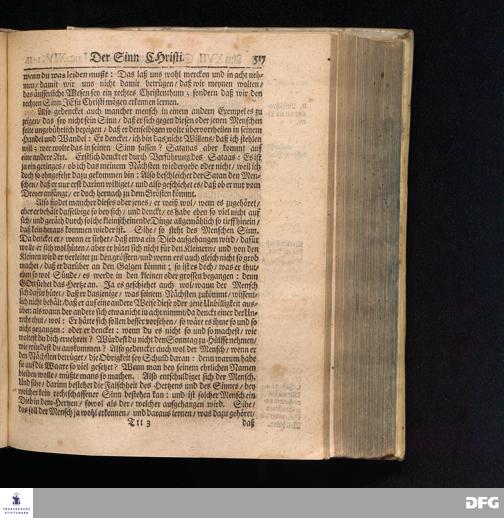 Der Sinn CHristi. 517
wenn du was leiden must: Das laß uns wohl mercken und in acht neh-
men/ damit wir uns nicht damit betrügen/ daß wir meynen wolten/
das äusserliche Wesen sey ein rechtes Christenthum; sondern daß wir den
rechten Sinn JEsu Christi mögen erkennen lernen.
Also gedencket auch mancher mensch in einem andern Exempel es zu
zeigen/ das sey nicht sein Sinn/ daß er sich gegen diesen oder jenen Menschen
seite ungebührlich bezeigen/ daß er denselbigen wolte übervortheilen in seinem
Handel und Wandel: Er dencket/ ich bin das nicht Willens/ daß ich stehlen
will; wer wolte das in seinen Sinn fassen? Satanas aber kommt auf
eine andere Art. Erstlich denckt er durch Verführung des Satans: Es ist
ja ein geringes/ ob ich das meinem Nächsten wiedergebe oder nicht/ weil ich
doch so ohngefehr dazu gekommen bin: Also beschleichet der Satan den Men-
schen/ daß er nur erst darinn williget/ und also geschiehet es/ daß ob er nur vom
Dreyer anfängt/ er doch hernach zu dem Grösten kömmt.
Also findet mancher dieses oder jenes/ er weiß wol/ wem es zugehöret/
aber er behält dasselbige so bey sich/ und denckt/ es habe eben so viel nicht auf
sich/ und geräth durch solche klein scheinende Dinge allgemählich so tieff hinein/
daß kein heraus kommen wieder ist. Sihe/ so steht des Menschen Sinn.
Da dencket er/ wenn er siehet/ daß etwa ein Dieb aufgehangen wird/ dafür
wolle er sich wol hüten/ aber er hütet sich nicht für den Kleinern/ und von den
Kleinen wird er verleitet zu den grössern/ und wenn ers auch gleich nicht so grob
machet/ daß er darüber an den Galgen kömmt; so ist es doch/ was er thut/
eben so wol Sünde/ es werde in den kleinen oder grossen begangen: denn
GOtt siehet das Hertze an. Ja es geschiehet auch wol/ wann der Mensch
sich dafür hütet/ daß er dasjenige/ was seinem Nächsten zukömmt/ wissent-
lich nicht behält/ daß er auf eine andere Weise diese oder jene Unbilligkeit aus-
übet/ als wann der andere sich etwa nicht in acht nimmt/ da denckt einer der Un-
recht thut/ wol: Er hätte sich sollen besser vorsehen/ so wäre es ihme so und so
nicht gegangen: oder er dencket: wenn du es nicht so und so machest/ wie
wolltest du dich ernehren? Würdest du nicht den Sonntag zu Hülffe nehmen/
wie würdest du auskommen? Also gedencket auch wol der Mensch/ wenn er
den Nächsten betrüget/ die Obrigkeit sey Schuld daran: denn warum habe
sie auf die Waare so viel gesetzet? Wann man bey seinem ehrlichen Namen
bleiben wolle/ müste mans so machen. Also entschuldiget sich der Mensch.
Und sihe/ darinn bestehet die Falschheit des Hertzens und des Sinnes/ bey
welcher kein rechtschaffener Sinn bestehen kan: und ist solcher Mensch ein
Dieb in dem Hertzen/ sowol als der/ welcher aufgehangen wird. Sihe/
das soll der Mensch ja wohl erkennen/ und daraus lernen/ was dazu gehöret/
Ttt 3 daß
FRANCKESCHE
STIFTUNGEN
DFG